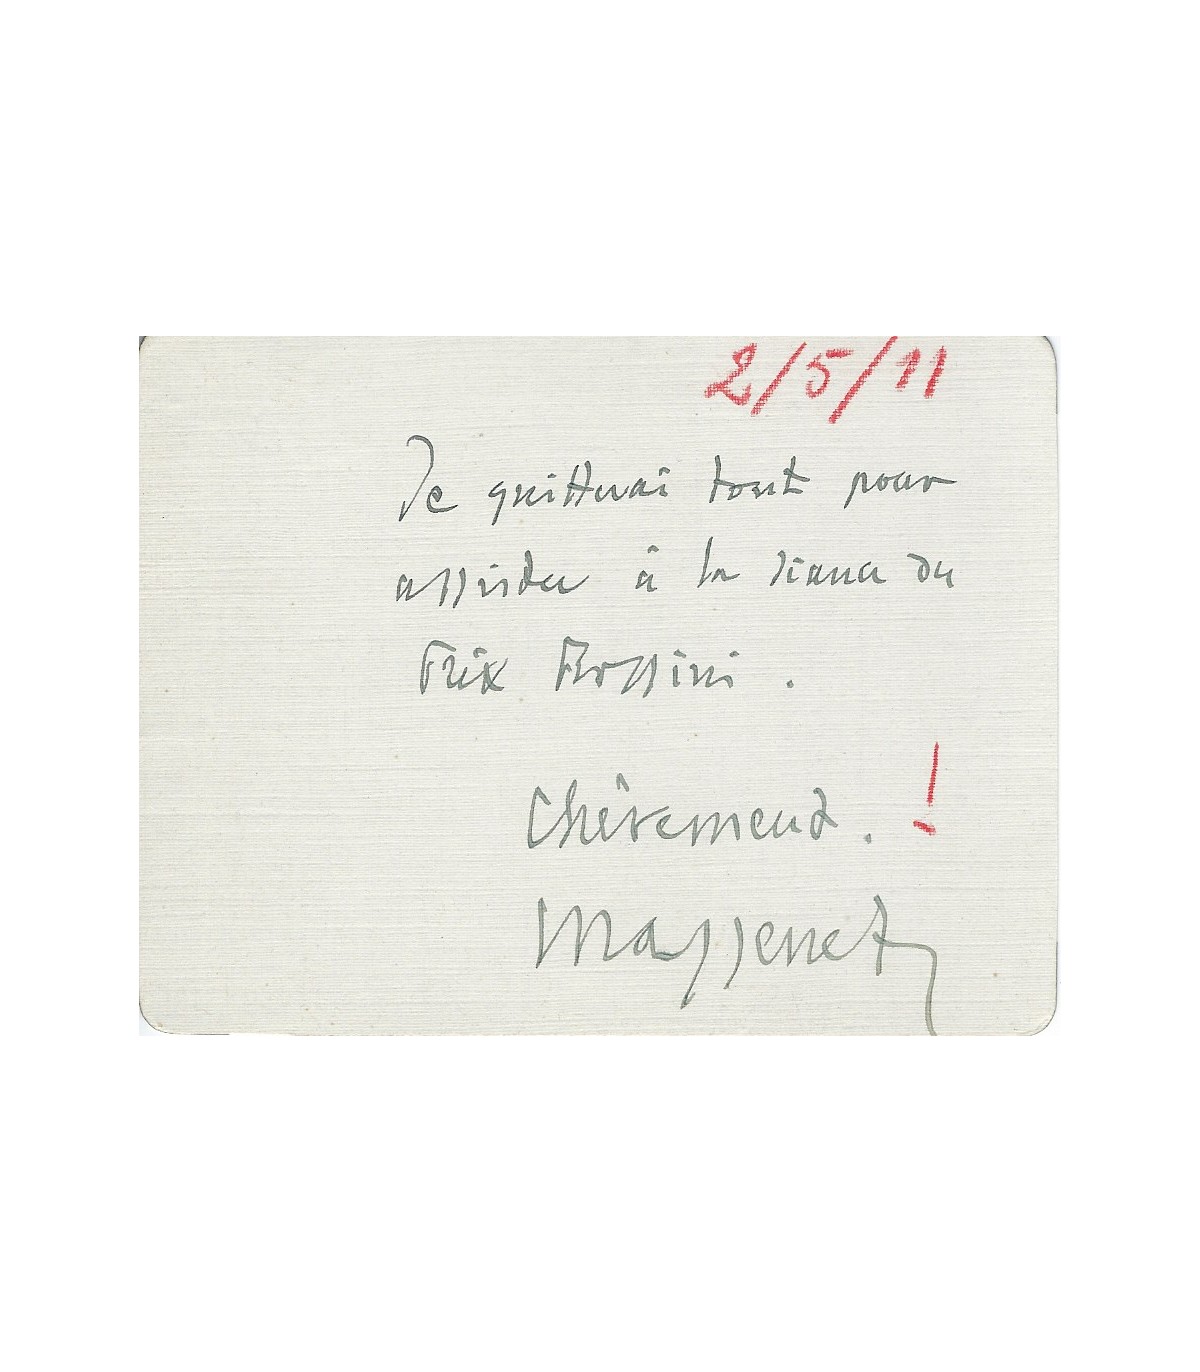 2/5/11
Je quitterai tout pour
assister à la séance du
Prix Rossini.
Chèrement. !
Massenet